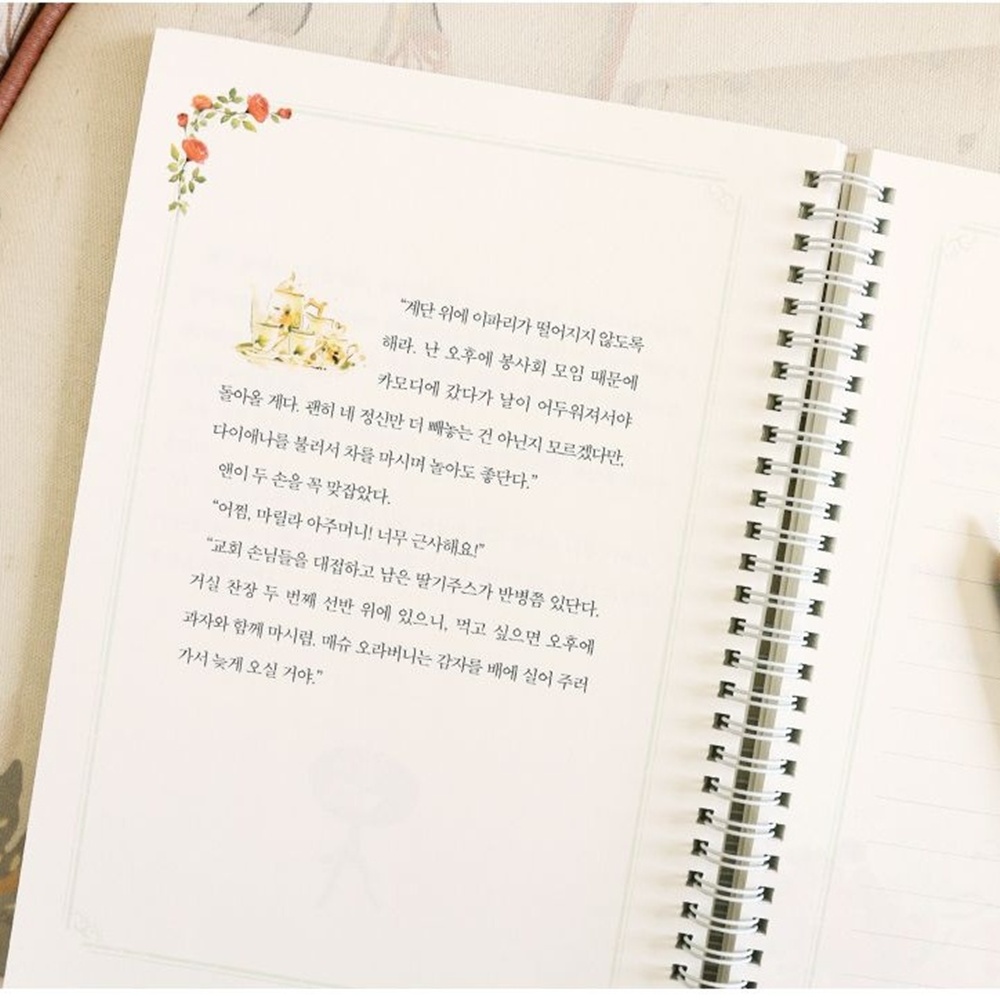 “계단 위에 이파리가 떨어지지 않도록
해라. 난 오후에 봉사회 모임 때문에
카모디에 갔다가 날이 어두워져서야
돌아올 게다. 괜히 네 정신만 더 빼놓는 건 아닌지 모르겠다만,
다이애나를 불러서 차를 마시며 놀아도 좋단다.”
앤이 두 손을 꼭 맞잡았다.
“어쩜, 마릴라 아주머니! 너무 근사해요!”
“교회 손님들을 대접하고 남은 딸기주스가 반병쯤 있단다.
거실 찬장 두 번째 선반 위에 있으니, 먹고 싶으면 오후에
과자와 함께 마시렴. 매슈 오라버니는 감자를 배에 실어 주러
가서 늦게 오실 거야.”